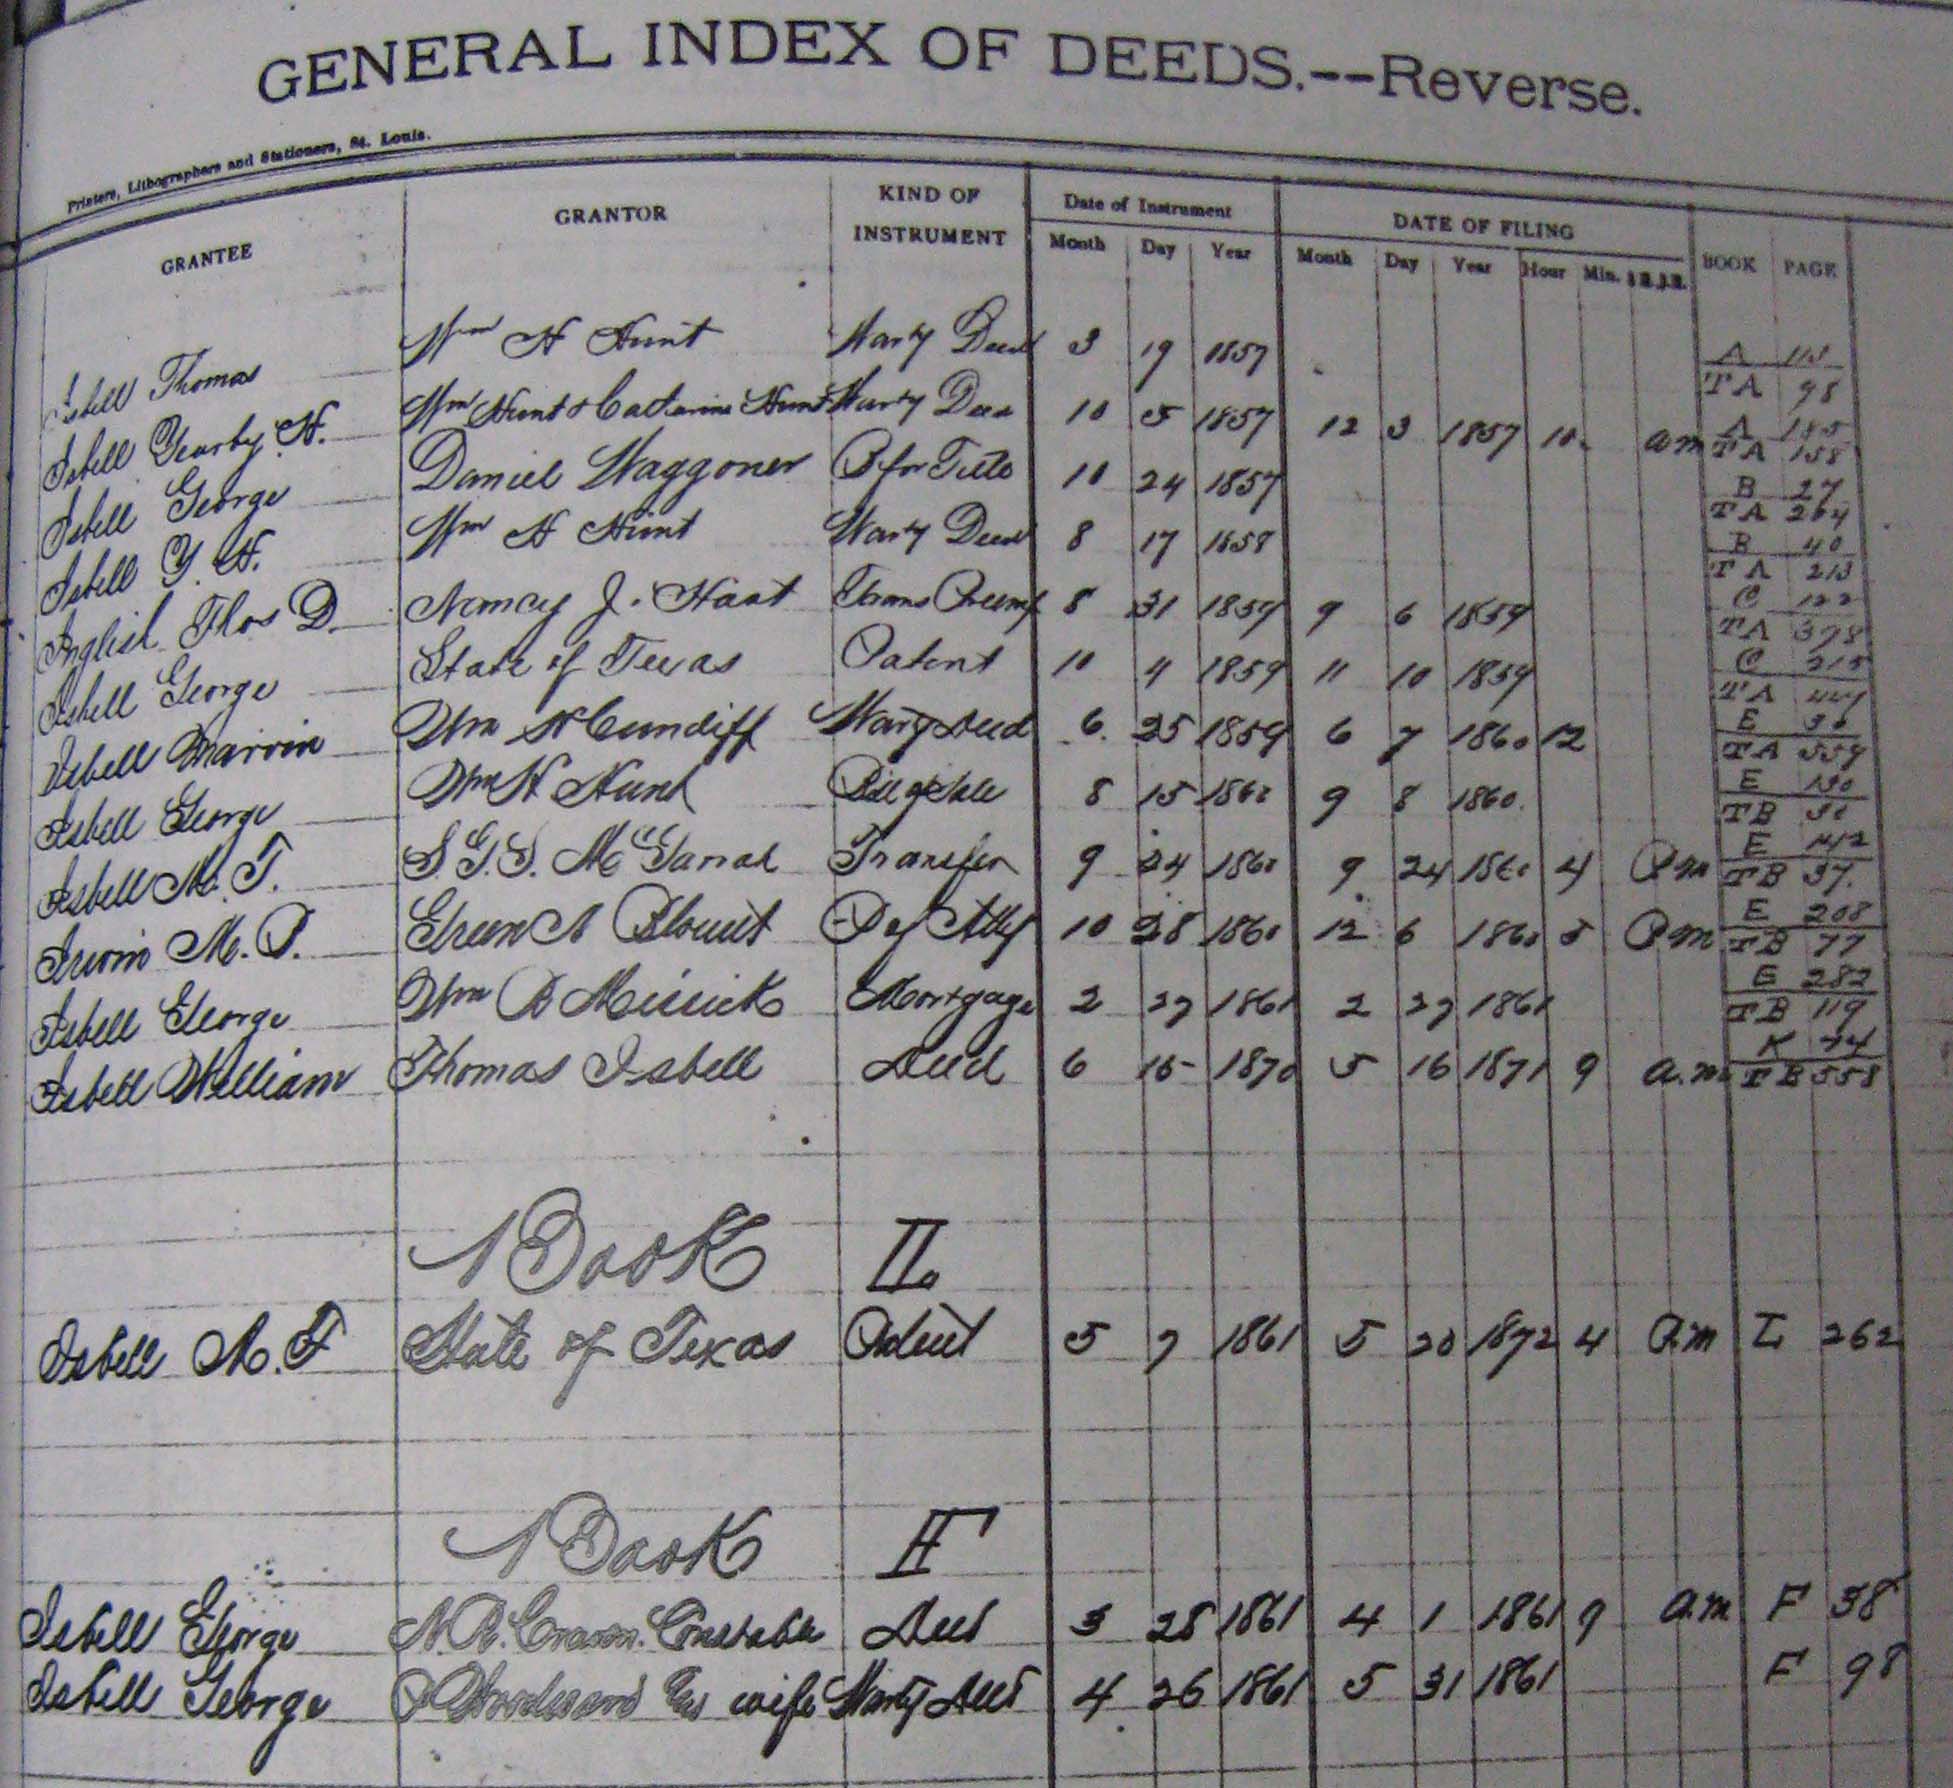 GENERAL INDEX OF DEEDS.--Reverse.
Printers, Lithographers and Stationers, St. Louis.
GRANTEE GRANTOR KIND OF INSTRUMENT Date of Instrument Month Day Year DATE OF FILING Month Day Year Hour Min. BOOK PAGE
Isbell Thomas Wm H Hunt Warty Deed 3 19 1857 A 113 TA 98
Isbell Yearby H. Wm Hunt & Catherine Hunt Warty Deed 10 5 1857 12 3 1857 10 am A 185 TA 158
Isbell George Daniel Waggoner B for Title 10 24 1857 B 27 TA 204
Isbell Y. H. Wm H Hunt Warty Deed 8 17 1858 B 40 TA 213
English Thos D. Nancy J. Hast Trans Preemp 8 31 1859 9 6 1859 C 122 TA 378
Isbell George State of Texas Patent 10 4 1859 11 10 1859 C 215 TA 447
Isbell Marvin Wm H Cundiff Warty Deed 6 25 1859 6 7 1860 12 E 30 TA 559
Isbell George Wm H Hunt Bill of Sale 8 15 1860 9 8 1860 E 130 TB 31
Isbell M. T. S. G. S. Transfer 9 24 1860 9 24 1860 4 Pm E 142 TB 37.
Irwin M. P. Green A Blount P of Atty 10 28 1860 12 6 1860 5 Pm E 208 TB 77
Isbell George Wm B Missick Mortgage 2 27 1861 2 27 1861 E 282 TB 119
Isbell William Thomas Isbell Deed 6 15 1870 5 16 1871 9 a.m K 74 TB 558
Book II.
Isbell M. T State of Texas Patent 5 7 1861 5 20 1872 4 P.m L 262
Book F
Isbell George Constable Deed 3 28 1861 4 1 1861 9 a.m F 38
Isbell George wife Warty Deed 4 26 1861 5 31 1861 F 98